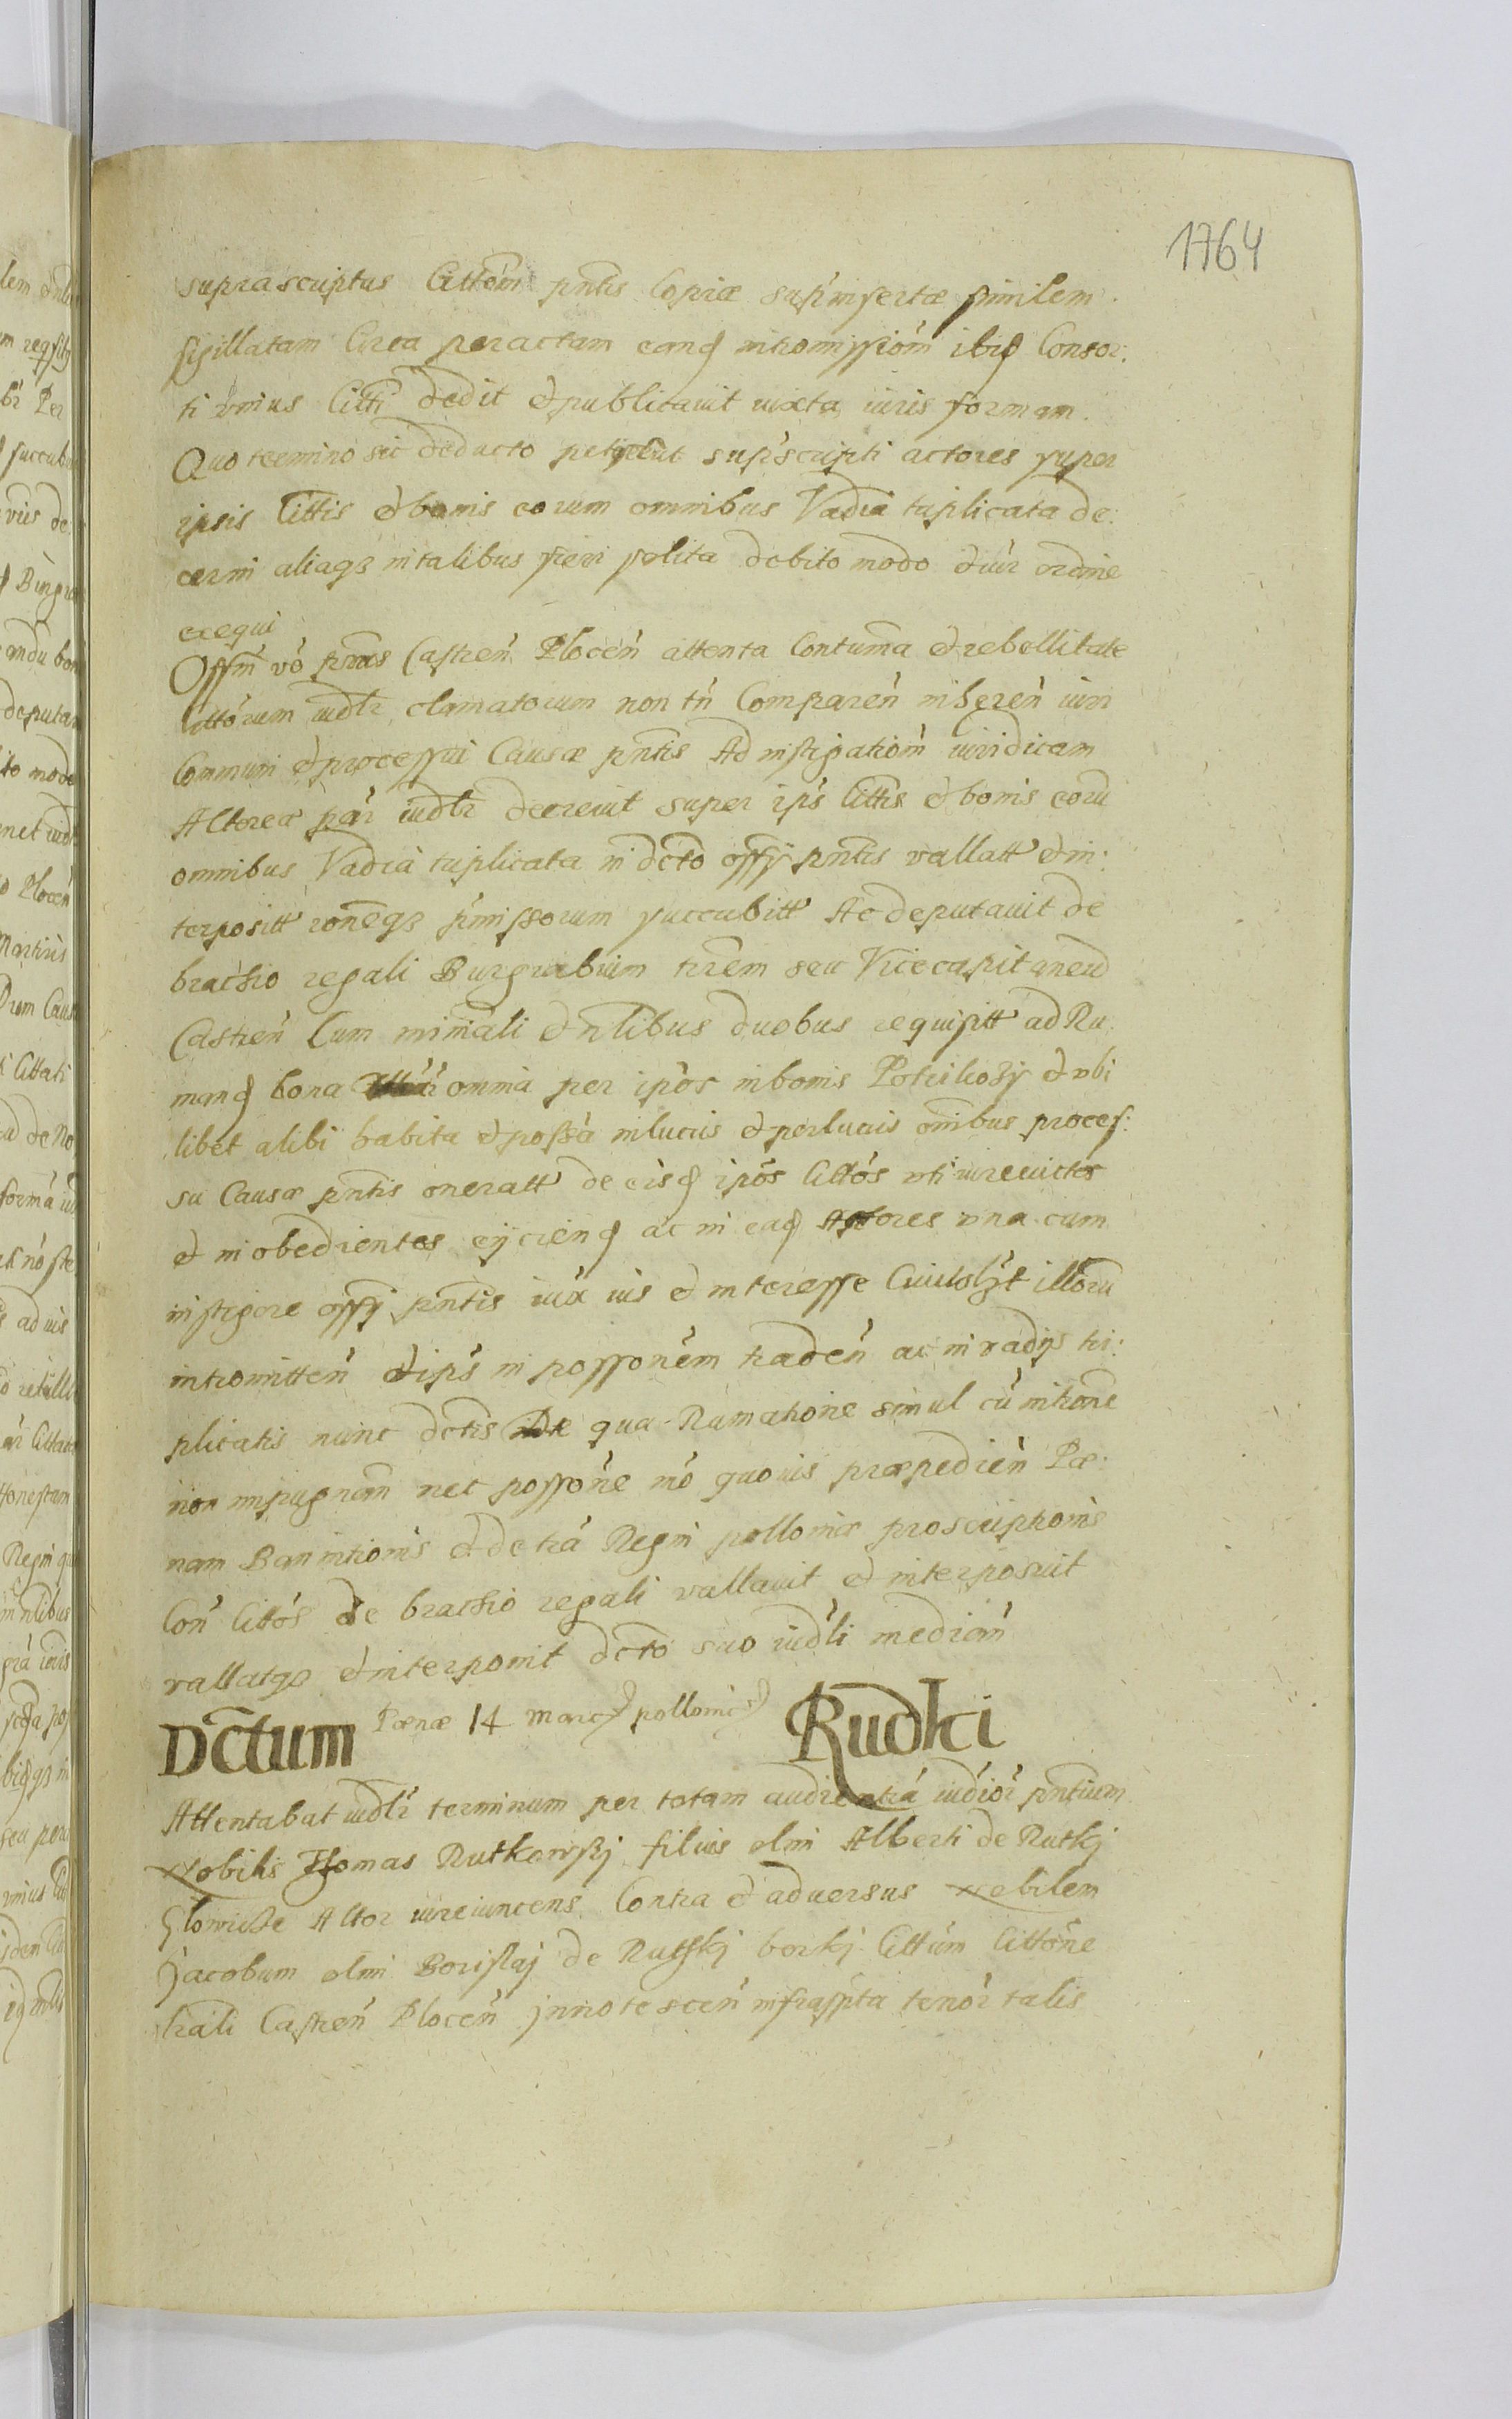 1764
suprascriptus Cittõm pntis Copiæ supinsertæ similem
sigillatam Circa peractam eand intromissiom ibid Consor:
ti vnius Citti dedit et publicauit iuxta iuris formam
Quo termino sic deducto petierut supscripti actores super
ipsis Cittis et bonis eorum omnibus Vadia triplicata de:
cerni aliaqz in talibus fieri solita debito modo et iur ordine
exequi
Offm vo pñs Castren Plocen attenta Contuma et rebellitate
Cittorum iudlr clamatorum non tn Comparen inheren iuri
Communi et processui Causæ pntis Ad instigatiom iuridicam
Actorea par iudlr decreuit super ips Cittis et bonis eoru
omnibus Vadia triplicata in dcto offy pntis vallatt et in:
terpositt roneqz pmissorum succubitt Ac deputauit de
brachio regali Burgrabium trem seu Vicecapitaneu
Castren Cum miniali et nlibus duobus requisitt ad Ru
mand bona omnia per ipos in bonis et vbi
libet alibi habita et possa mlucris et perlucris omibus proces:
su Causæ pntis oneratt de eisd ipos Cittos vti iureuictos
et inobedientes eijciend ac in ead Actores vna cum
instigore offy pntis iux ius et interesse illoru
intromitten et ips in possonem traden ac in vadys tri:
plicatis nunc dctis De qua Rumatione simul cu introne
non impugnam nec possone mo quouis præpedien Pæ:
nam Bannitionis et de tra Regni polloniæ proscriptionis
Con Cittos de brachio regali vallauit et interposuit
vallatqz et interponit dcto suo iudli median
Dctum Pænæ 14 marc pollonic Rudki
Attentabat iudlr terminum per totam audientia iudior pntium
Nobilis Thomas Rutkowskj filius olmi Alberti de Rutkj
Glowicze Actor iureiuncens Contra et aduersus Nobilem
Jacobum olmi Borislaj de Rutskj borkj Cittum Cittone
trali Castren Plocen jnnotescen infraspta tenor talis